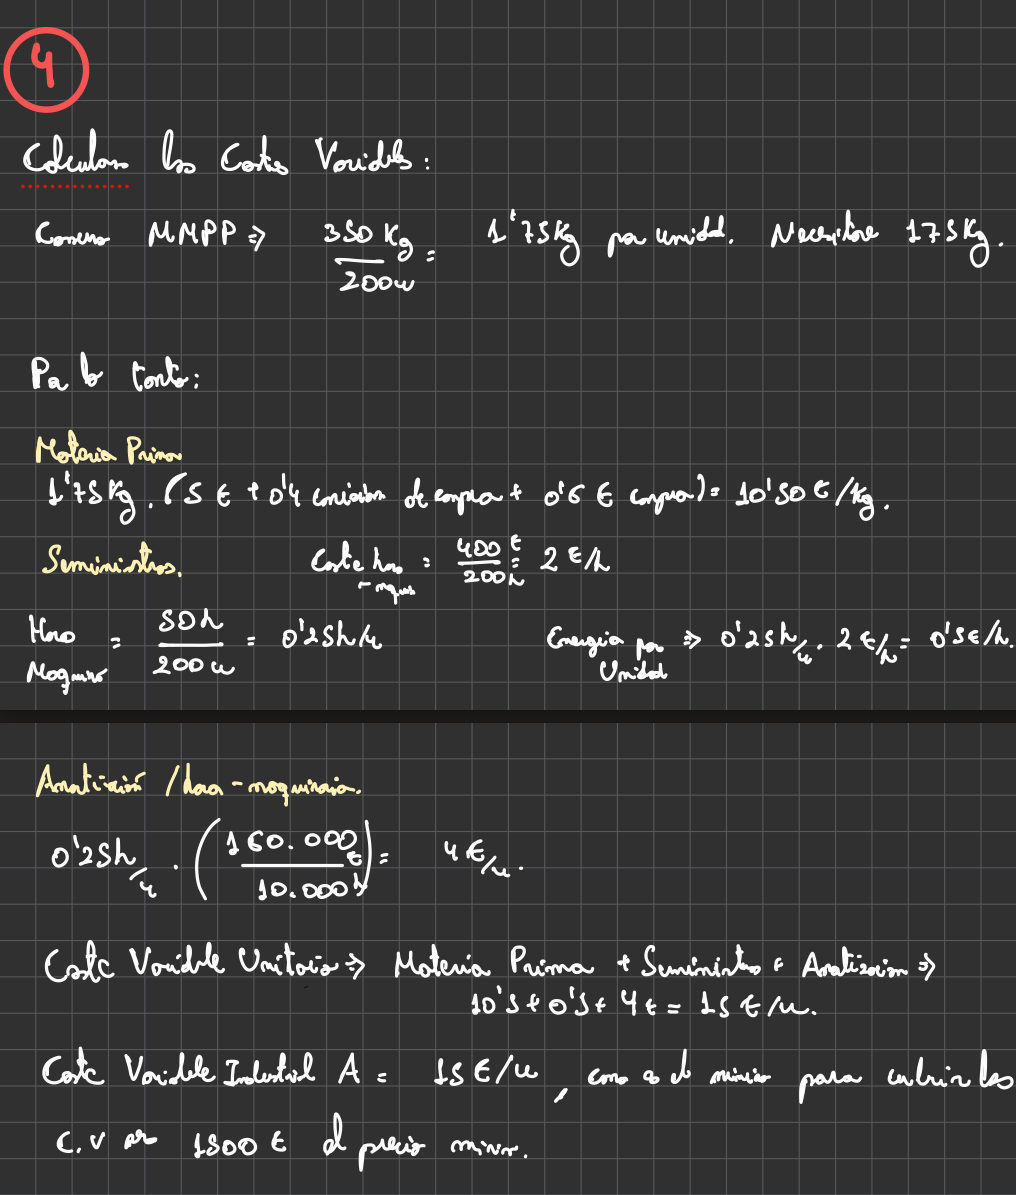 4
Calculamos los Costes Variables:
Consumo MMPP ⇒ 350 Kg / 200u = 1'75Kg por unidad. Necesitare 175Kg.
Por lo tanto:
Materia Prima
1'75Kg · (5 € + 0'4 comision de compra + 0'6 € compra) = 10'50 €/Kg.
Suministros.
Coste hora-maquina = 400€ / 200h = 2 €/h
Hora Maquina = 50h / 200u = 0'25h/u
Energia por Unidad ⇒ 0'25h/u · 2 €/h = 0'5€/h.
Amortización / hora-maquinaria.
0'25h/u · (160.000€ / 10.000h) = 4€/u.
Coste Variable Unitario ⇒ Materia Prima + Suministros + Amortizacion ⇒
10'5 + 0'5 + 4€ = 15€/u.
Coste Variable Industrial A = 15€/u, como es el minimo para cubrir los
C.V 1500 € el precio minimo.